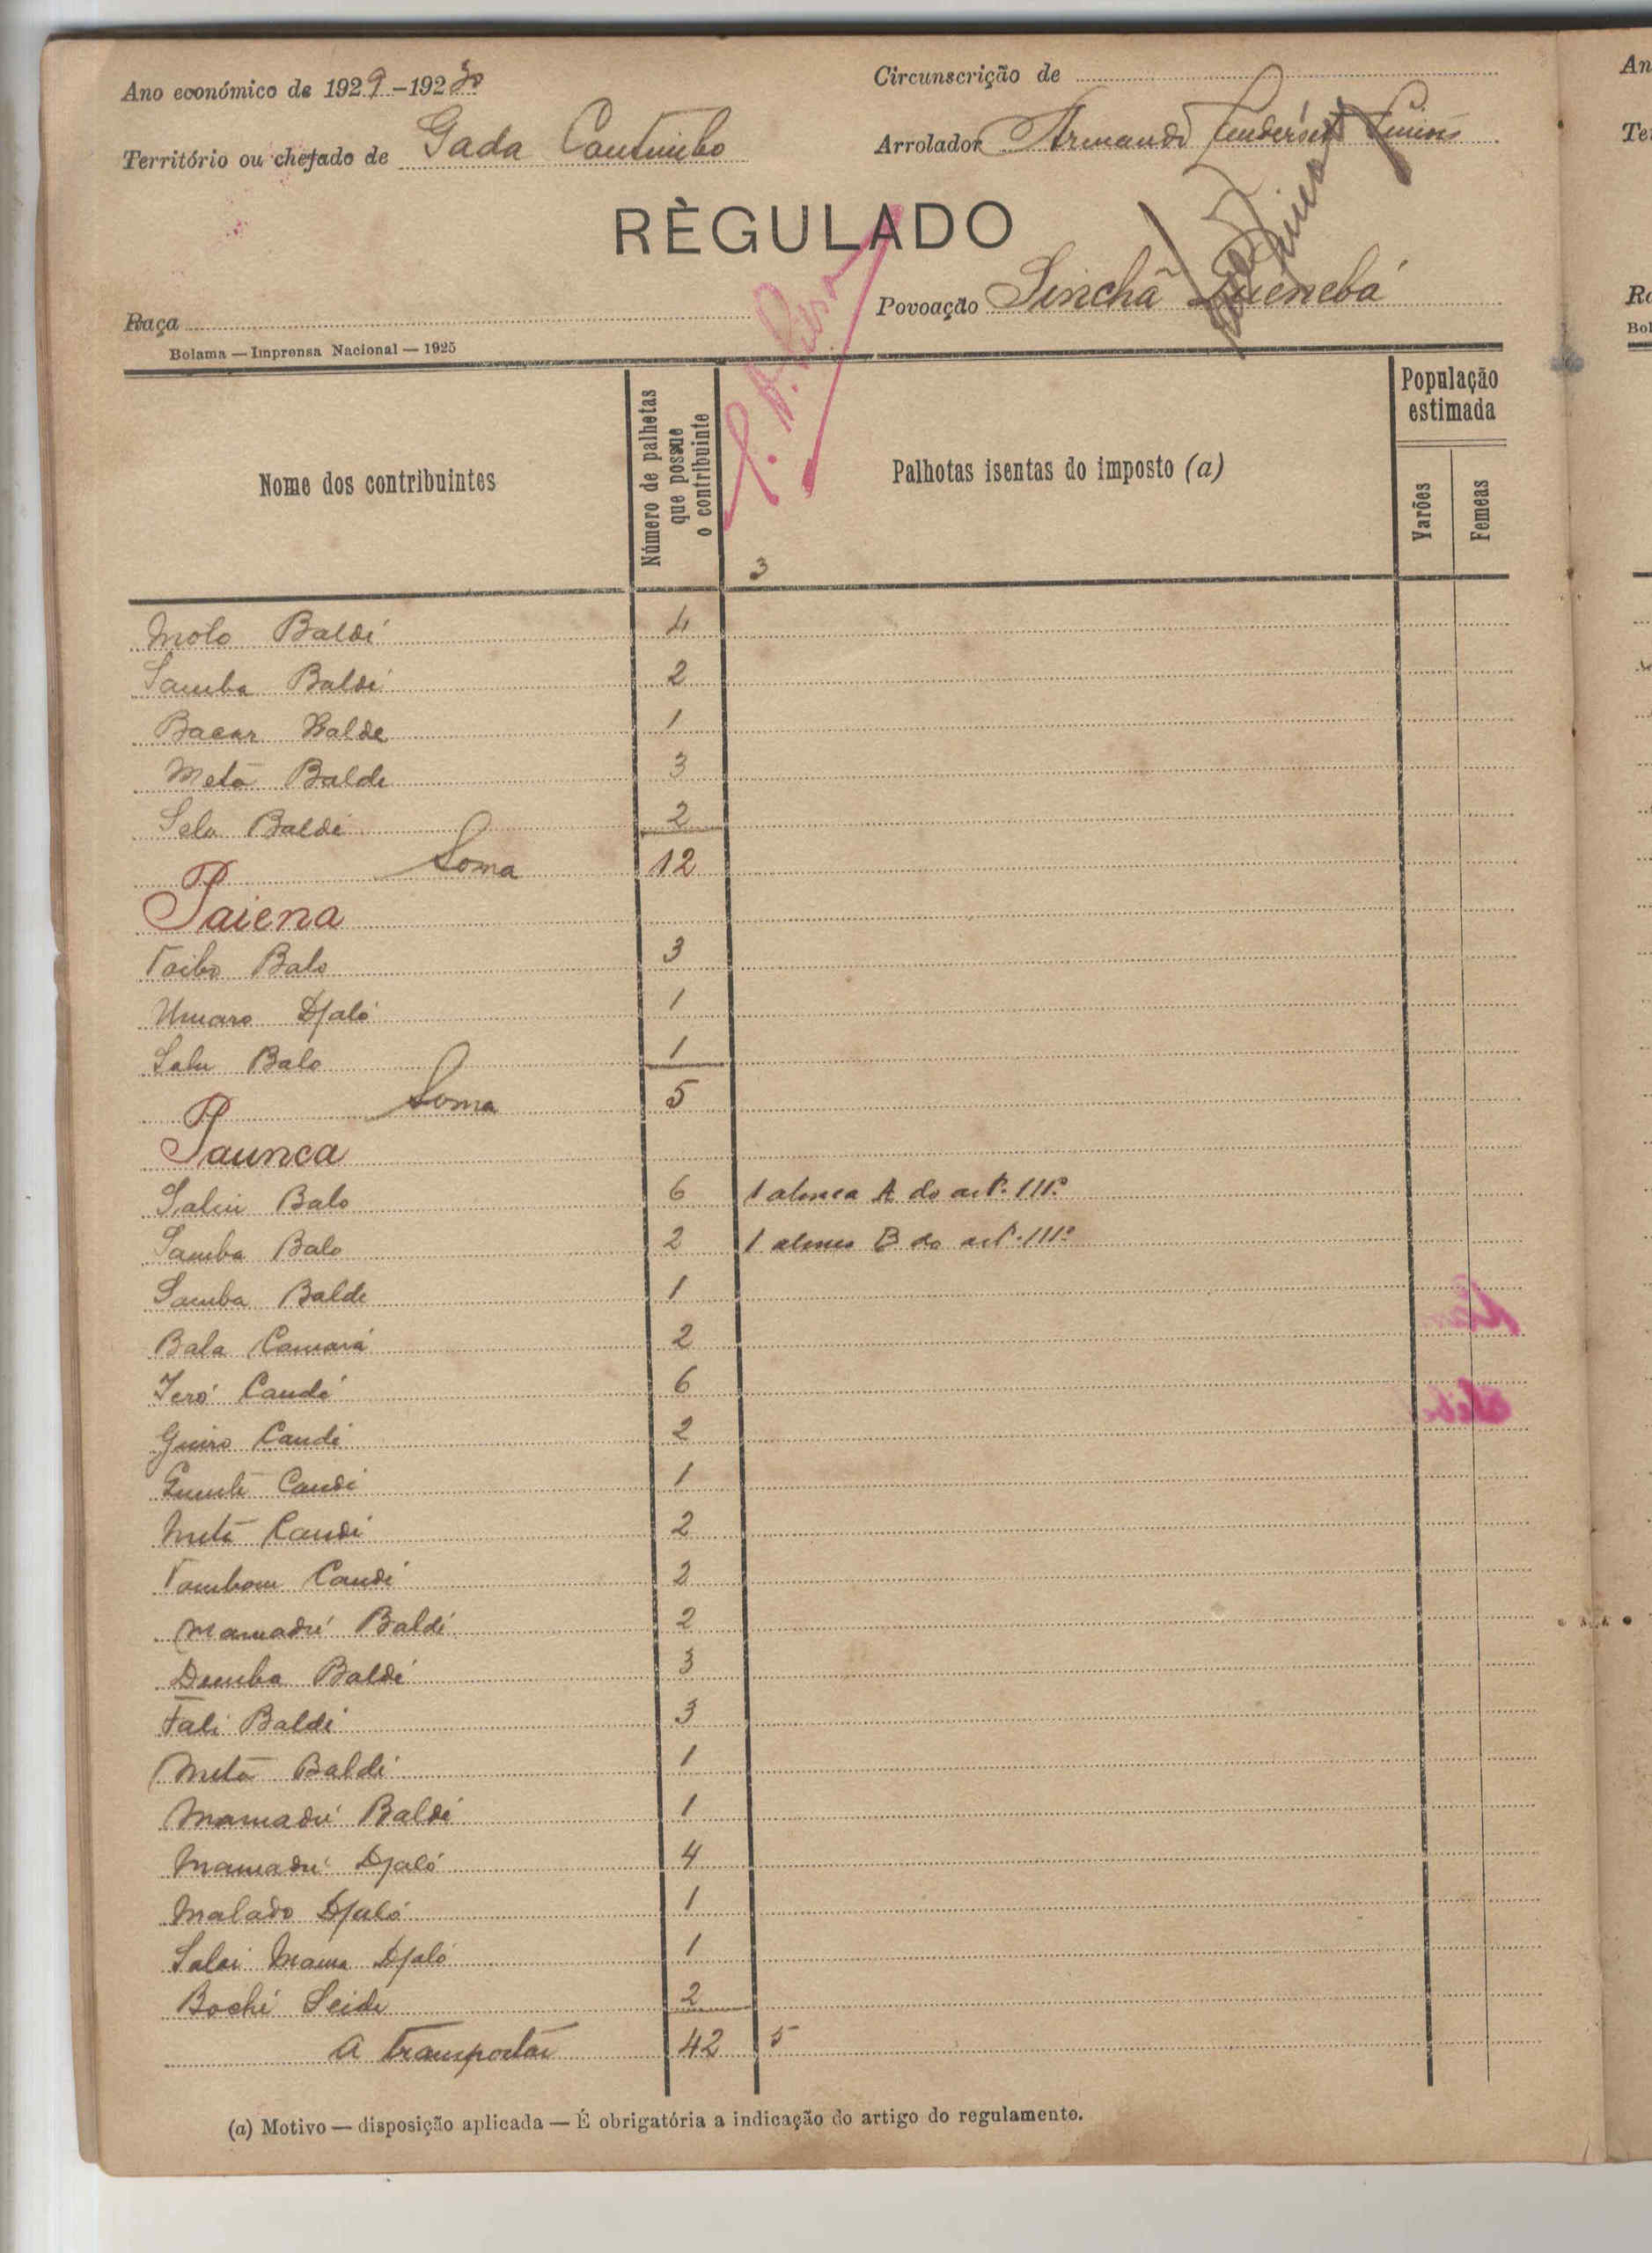 Ano económico de 1929-1930
Circunscrição de
Território ou chefado de Gada Cantimbo
Arrolador Armando
RÈGULADO
Povoação Sinchã Quenebá
Raça
Bolama — Imprensa Nacional — 1925
Nome dos contribuintes
Número de palhotas que possue o contribuinte
Palhotas isentas do imposto (a)
População estimada
Varões
Femeas
3
Molo Baldé 4
Samba Baldé 2
Bacar Balde 1
Metá Balde 3
Selo Baldé 2
Soma 12
Paiena
Taibo Balo 3
Umaro Djaló 1
Salu Balo 1
Soma 5
Paunca
Saliu Balo 6 1 alinea A do artº. 111º
Samba Balo 2 1 alinea B do artº. 111º
Samba Balde 1
Bala Camará 2
Jeró Candé 6
Guiro Candé 2
Candé 1
Metá Candé 2
Candé 2
Mamadú Baldé 2
Demba Baldé 3
Fali Baldé 3
Metá Baldé 1
Mamadú Baldé 1
Mamadú Djaló 4
Malado Djaló 1
Salai Mama Djaló 1
Boché Seide 2
A transportar 42 5
(a) Motivo — disposição aplicada — É obrigatória a indicação do artigo do regulamento.